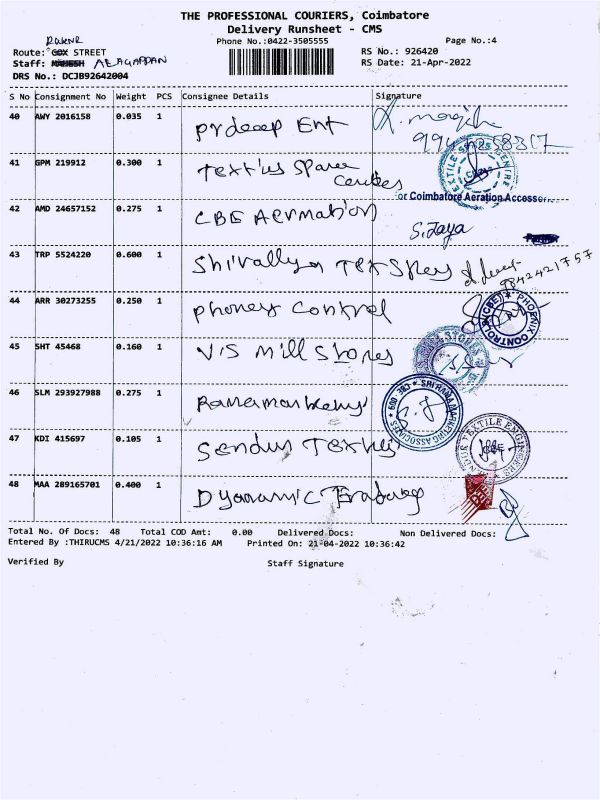 THE PROFESSIONAL COURIERS, Coimbatore
Delivery Runsheet - CMS
Phone No.:0422-3505555 Page No.:4
Route: STREET RS No.: 926420
Staff: ALAGAPPAN RS Date: 21-Apr-2022
DRS No.: DCJB92642004
S No Consignment No Weight PCS Consignee Details Signature
40 AWY 2016158 0.035 1 Prdeep Ent
41 GPM 219912 0.300 1 Spares
Centres
or Coimbatore Aeration Accessor
42 AMD 24657152 0.275 1 CBE Aermation S. Jaya
Partner
43 TRP 5524220 0.600 1 Shivallya 9842421757
44 ARR 30273255 0.250 1 Phoney Control PHOENIX CONTROL
45 SHT 45468 0.160 1 VIS Mill Stores
46 SLM 293927988 0.275 1 SHI RAMA MARKETING ASSOCIATES * CBE - 009
47 KDI 415697 0.105 1 TEXTILE
48 MAA 289165701 0.400 1 Dyanamic
Total No. Of Docs: 48 Total COD Amt: 0.00 Delivered Docs: Non Delivered Docs:
Entered By :THIRUCMS 4/21/2022 10:36:16 AM Printed On: 21-04-2022 10:36:42
Verified By Staff Signature